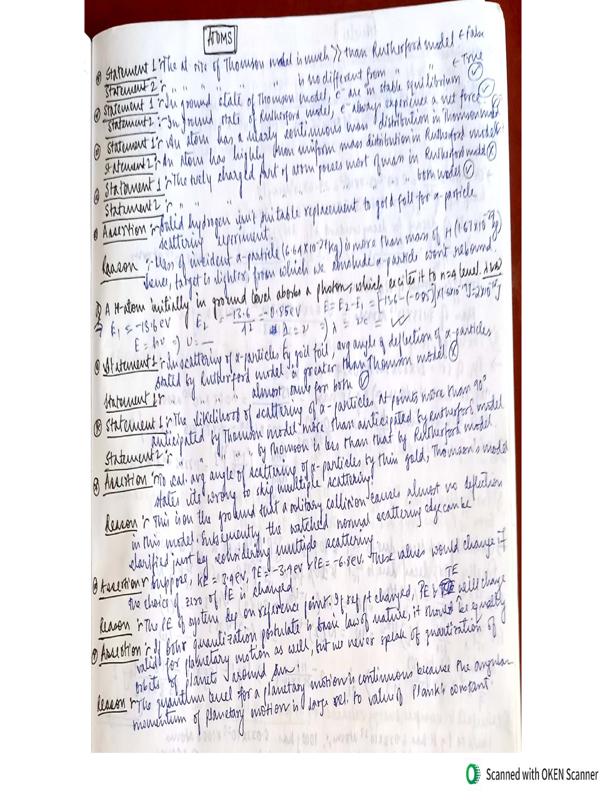 ATOMS
Statement 1:- The at. size of Thomson model is much >> than Rutherford model ← False
Statement 2:- " " " " " is no different from " " ← True
Statement 1:- In ground state of Thomson model, e⁻ are in stable equilibrium ✓
Statement 2:- In ground state of Rutherford model, e⁻ always experience a net force ✓
Statement 1:- An atom has a nearly continuous mass distribution in Thomson model
Statement 2:- An atom has highly non uniform mass distribution in Rutherford model
Statement 1:- The +vely charged part of atom posses most of mass in Rutherford model
Statement 2:- " " " " " " " both model ✓
Assertion:- Solid hydrogen isn't suitable replacement to gold foil for α-particle
scattering experiment
Reason:- Mass of incident α-particle (6.64×10⁻²⁷kg) is more than mass of H (1.67×10⁻²⁷kg)
hence, target is lighter, from which we conclude α-particle won't rebound
A H-atom initially in ground level absorbs a photon, which excites it to n=4 level.
E₁ = -13.6eV E₂ = -13.6/4² = -0.85eV
E = hν
Statement 1:- In scattering of α-particles by gold foil, avg angle of deflection of α-particles
stated by Rutherford model is greater than Thomson model
Statement 1:- " " " " almost same for both ✓
Statement 1:- The likelihood of scattering of α-particles at points more than 90°
anticipated by Thomson model more than anticipated by Rutherford model
Statement 2:- " " " by Thomson is less than that by Rutherford model
Assertion:- To cal. avg angle of scattering of α-particles by thin gold, Thomson's model
states its wrong to skip multiple scattering.
Reason:- This is on the ground that a solitary collision causes almost no deflection
in this model. Subsequently, the watched normal scattering edge can be
clarified just by considering multiple scattering
Assertion:- Suppose, KE = 3.4eV, TE = -3.4eV & PE = -6.8eV. These values would change if
the choice of zero of PE is changed.
Reason:- The PE of system dep on reference point. If ref pt changed, PE & TE will change
Assertion:- If Bohr quantization postulate is basic law of nature, it should be equally
valid for planetary motion as well, but we never speak of quantization of
orbits of planets around sun
Reason:- The quantum level for a planetary motion is continuous because the angular
momentum of planetary motion is large rel. to value of Plank's constant
Scanned with OKEN Scanner